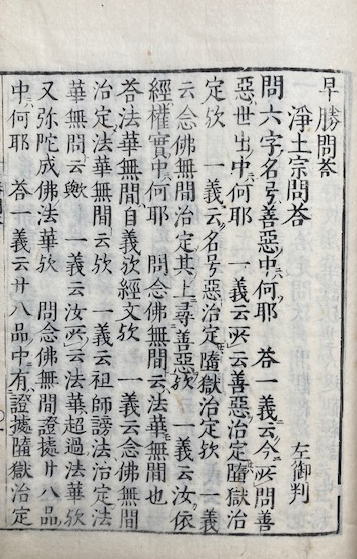 早勝問答
淨土宗問答　左御判
問六字名号善惡中ニハ何耶　答一義云今所問善
惡世出中ニハ何耶　一義云所云善惡治定墮獄治
定欤　一義云名号惡治定墮獄治定欤　一義
云念佛無間治定其上尋善惡欤　一義云汝依
經權實中何耶　問念佛無間云法華無間也
答法華無間自義欤經文欤　一義云念佛無間
治定法華無間云欤　一義云祖師謗法治定法
華無間云歟　一義云汝所云法華超過法華欤
又弥陀成佛法華欤　問念佛無間證據廿八品
中ニハ何耶　答一義云廿八品中有證據墮獄治定